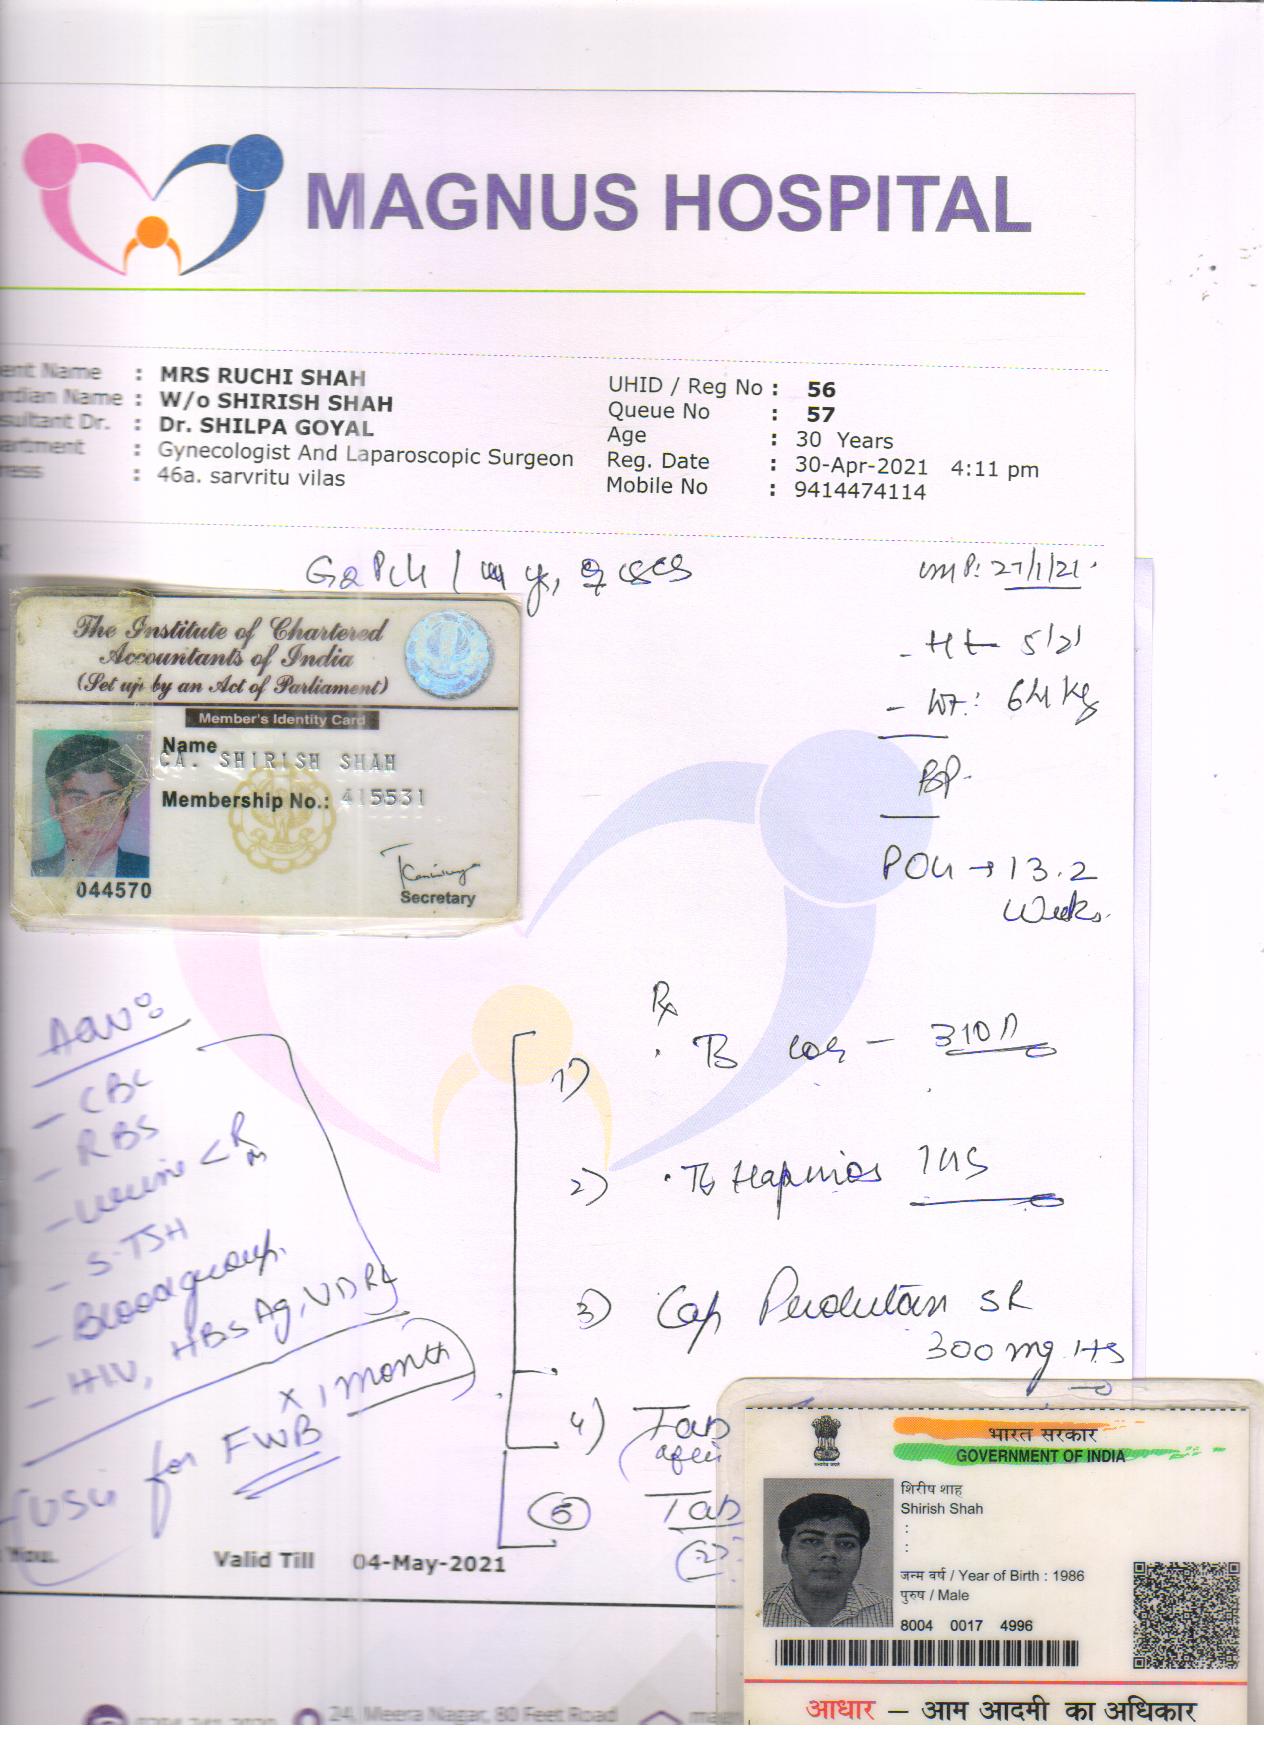 MAGNUS HOSPITAL
ent Name : MRS RUCHI SHAH
rdian Name : W/o SHIRISH SHAH
sultant Dr. : Dr. SHILPA GOYAL
artment : Gynecologist And Laparoscopic Surgeon
ress : 46a. sarvritu vilas
UHID / Reg No : 56
Queue No : 57
Age : 30 Years
Reg. Date : 30-Apr-2021 4:11 pm
Mobile No : 9414474114
LMP: 27/1/21
- Ht 5'2"
- Wt.: 64 kg
BP
POG → 13.2
Weeks.
The Institute of Chartered
Accountants of India
(Set up by an Act of Parliament)
Member's Identity Card
Name
CA. SHIRISH SHAH
Membership No.: 415531
044570
Secretary
Adv:
- CBC
- RBS
- Urine
- S.TSH
- Bloodgroup.
- HIV, HBsAg, VDRL
x 1 month
USG for FWB
Rx
1)
2)
3) Cap SR
300 mg HS
4) Tab
5 Tab
You.
Valid Till 04-May-2021
24, Meera Nagar, 80 Feet Road
भारत सरकार
GOVERNMENT OF INDIA
शिरीष शाह
Shirish Shah
:
:
जन्म वर्ष / Year of Birth : 1986
पुरुष / Male
8004 0017 4996
आधार – आम आदमी का अधिकार